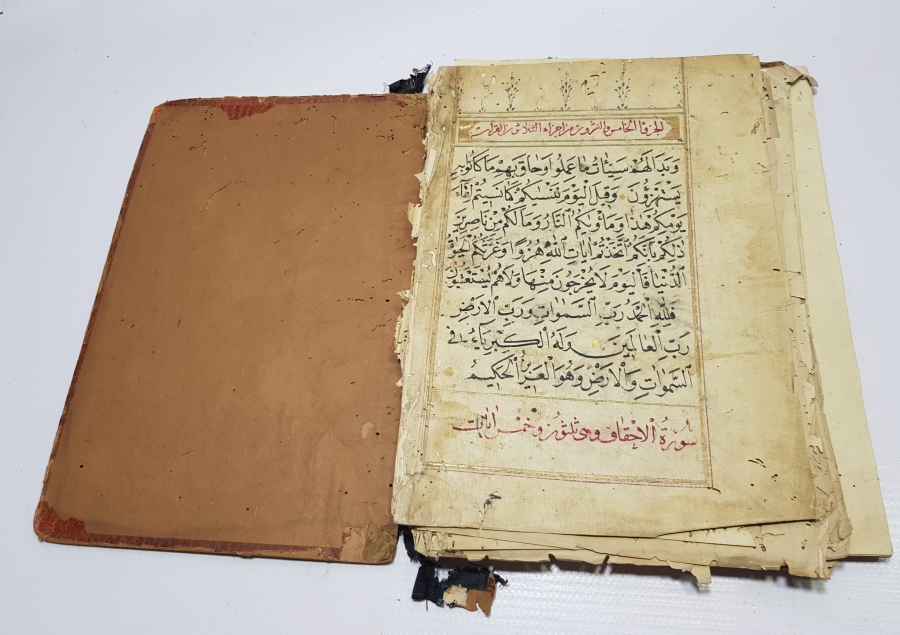 الجزء الخامس والعشرون من اجزاء الثلاثين من القران
وَبَدَا لَهُمْ سَيِّئَاتُ مَا عَمِلُوا وَحَاقَ بِهِمْ مَا كَانُوا بِهِ
يَسْتَهْزِؤُنَ وَقِيلَ الْيَوْمَ نَنْسٰيكُمْ كَمَا نَسِيتُمْ لِقَاءَ
يَوْمِكُمْ هٰذَا وَمَأْوٰيكُمُ النَّارُ وَمَا لَكُمْ مِنْ نَاصِرِينَ
ذٰلِكُمْ بِأَنَّكُمُ اتَّخَذْتُمْ اٰيَاتِ اللّٰهِ هُزُوًا وَغَرَّتْكُمُ الْحَيٰوةُ
الدُّنْيَا فَالْيَوْمَ لَا يُخْرَجُونَ مِنْهَا وَلَا هُمْ يُسْتَعْتَبُونَ
فَلِلّٰهِ الْحَمْدُ رَبِّ السَّمٰوَاتِ وَرَبِّ الْاَرْضِ
رَبِّ الْعَالَمِينَ وَلَهُ الْكِبْرِيَاءُ فِي
السَّمٰوَاتِ وَالْاَرْضِ وَهُوَ الْعَزِيزُ الْحَكِيمُ
سُورَةُ الْاَحْقَافِ وَهِيَ ثَلٰثُونَ وَخَمْسُ اٰيَاتٍ